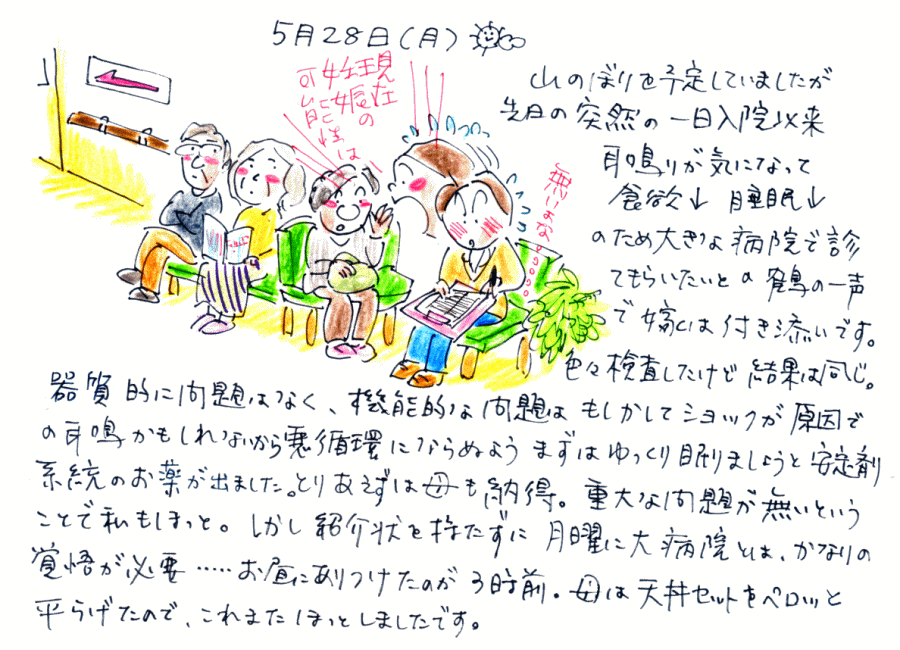 5月28日(月)
現在
妊娠の
可能性は
無いよな
山のぼりを予定していましたが
先月の突然の一日入院以来
耳鳴りが気になって
食欲↓ 睡眠↓
のため大きな病院で診
てもらいたいとの鶴の一声
で嬌は付き添いです。
色々検査したけど結果は同じ。
器質的に問題はなく、機能的な問題は もしかしてショックが原因で
の耳鳴かもしれないから悪循環にならぬよう まずはゆっくり眠りましょうと安定剤
系統のお薬が出ました。とりあえずは母も納得。重大な問題が無いという
ことで私もほっと。しかし紹介状を持たずに 月曜に大病院とは、かなりの
覚悟が必要……お昼にありつけたのが 3時前。母は天丼セットをペロッと
平らげたので、これまたほっとしましたです。